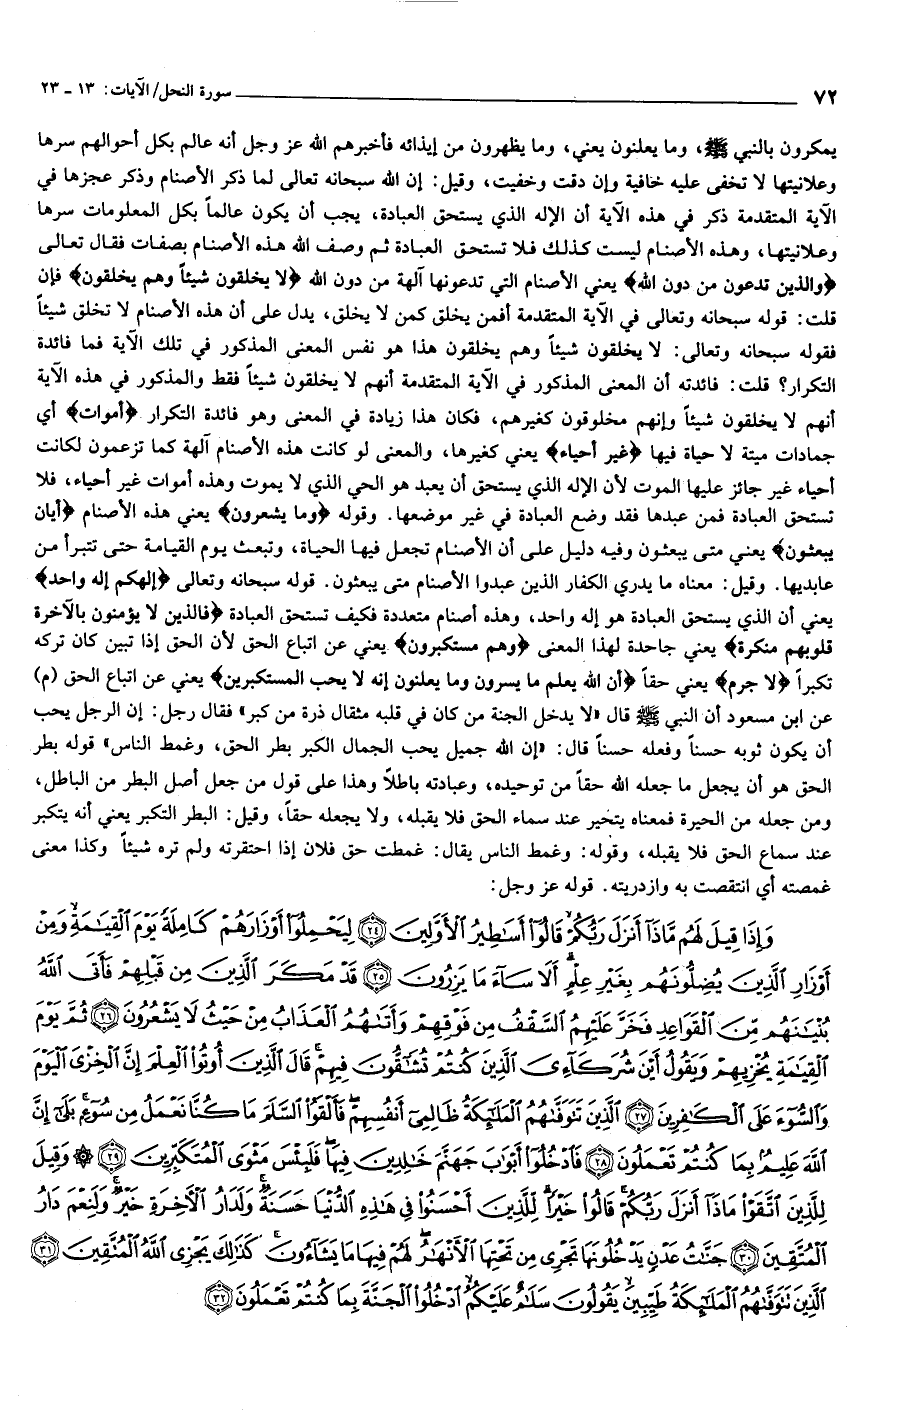 ٧٢ سورة النحل/ الآيات: ١٣ - ٢٣
يمكرون بالنبي ﷺ، وما يعلنون يعني، وما يظهرون من إيذائه فأخبرهم الله عز وجل أنه عالم بكل أحوالهم سرها
وعلانيتها لا تخفى عليه خافية وإن دقت وخفيت، وقيل: إن الله سبحانه تعالى لما ذكر الأصنام وذكر عجزها في
الآية المتقدمة ذكر في هذه الآية أن الإله الذي يستحق العبادة، يجب أن يكون عالماً بكل المعلومات سرها
وعلانيتها، وهذه الأصنام ليست كذلك فلا تستحق العبادة ثم وصف الله هذه الأصنام بصفات فقال تعالى
﴿والذين تدعون من دون الله﴾ يعني الأصنام التي تدعونها آلهة من دون الله ﴿لا يخلقون شيئاً وهم يخلقون﴾ فإن
قلت: قوله سبحانه وتعالى في الآية المتقدمة أفمن يخلق كمن لا يخلق، يدل على أن هذه الأصنام لا تخلق شيئاً
فقوله سبحانه وتعالى: لا يخلقون شيئاً وهم يخلقون هذا هو نفس المعنى المذكور في تلك الآية فما فائدة
التكرار؟ قلت: فائدته أن المعنى المذكور في الآية المتقدمة أنهم لا يخلقون شيئاً فقط والمذكور في هذه الآية
أنهم لا يخلقون شيئاً وإنهم مخلوقون كغيرهم، فكان هذا زيادة في المعنى وهو فائدة التكرار ﴿أموات﴾ أي
جمادات ميتة لا حياة فيها ﴿غير أحياء﴾ يعني كغيرها، والمعنى لو كانت هذه الأصنام آلهة كما تزعمون لكانت
أحياء غير جائز عليها الموت لأن الإله الذي يستحق أن يعبد هو الحي الذي لا يموت وهذه أموات غير أحياء، فلا
تستحق العبادة فمن عبدها فقد وضع العبادة في غير موضعها. وقوله ﴿وما يشعرون﴾ يعني هذه الأصنام ﴿أيان
يبعثون﴾ يعني متى يبعثون وفيه دليل على أن الأصنام تجعل فيها الحياة، وتبعث يوم القيامة حتى تتبرأ من
عابديها. وقيل: معناه ما يدري الكفار الذين عبدوا الأصنام متى يبعثون. قوله سبحانه وتعالى ﴿إلهكم إله واحد﴾
يعني أن الذي يستحق العبادة هو إله واحد، وهذه أصنام متعددة فكيف تستحق العبادة ﴿فالذين لا يؤمنون بالآخرة
قلوبهم منكرة﴾ يعني جاحدة لهذا المعنى ﴿وهم مستكبرون﴾ يعني عن اتباع الحق لأن الحق إذا تبين كان تركه
تكبراً ﴿لا جرم﴾ يعني حقاً ﴿أن الله يعلم ما يسرون وما يعلنون إنه لا يحب المستكبرين﴾ يعني عن اتباع الحق (م)
عن ابن مسعود أن النبي ﷺ قال «لا يدخل الجنة من كان في قلبه مثقال ذرة من كبر» فقال رجل: إن الرجل يحب
أن يكون ثوبه حسناً وفعله حسناً قال: «إن الله جميل يحب الجمال الكبر بطر الحق، وغمط الناس» قوله بطر
الحق هو أن يجعل ما جعله الله حقاً من توحيده، وعبادته باطلاً وهذا على قول من جعل أصل البطر من الباطل،
ومن جعله من الحيرة فمعناه يتخير عند سماء الحق فلا يقبله، ولا يجعله حقاً، وقيل: البطر التكبر يعني أنه يتكبر
عند سماع الحق فلا يقبله، وقوله: وغمط الناس يقال: غمطت حق فلان إذا احتقرته ولم تره شيئاً وكذا معنى
غمصته أي انتقصت به وازدريته. قوله عز وجل:
وَإِذَا قِيلَ لَهُم مَّاذَآ أَنزَلَ رَبُّكُمْ ۙ قَالُوٓا۟ أَسَٰطِيرُ ٱلْأَوَّلِينَ ﴿٢٤﴾ لِيَحْمِلُوٓا۟ أَوْزَارَهُمْ كَامِلَةً يَوْمَ ٱلْقِيَٰمَةِ ۙ وَمِنْ
أَوْزَارِ ٱلَّذِينَ يُضِلُّونَهُم بِغَيْرِ عِلْمٍ ۗ أَلَا سَآءَ مَا يَزِرُونَ ﴿٢٥﴾ قَدْ مَكَرَ ٱلَّذِينَ مِن قَبْلِهِمْ فَأَتَى ٱللَّهُ
بُنْيَٰنَهُم مِّنَ ٱلْقَوَاعِدِ فَخَرَّ عَلَيْهِمُ ٱلسَّقْفُ مِن فَوْقِهِمْ وَأَتَىٰهُمُ ٱلْعَذَابُ مِنْ حَيْثُ لَا يَشْعُرُونَ ﴿٢٦﴾ ثُمَّ يَوْمَ
ٱلْقِيَٰمَةِ يُخْزِيهِمْ وَيَقُولُ أَيْنَ شُرَكَآءِىَ ٱلَّذِينَ كُنتُمْ تُشَٰٓقُّونَ فِيهِمْ ۚ قَالَ ٱلَّذِينَ أُوتُوا۟ ٱلْعِلْمَ إِنَّ ٱلْخِزْىَ ٱلْيَوْمَ
وَٱلسُّوٓءَ عَلَى ٱلْكَٰفِرِينَ ﴿٢٧﴾ ٱلَّذِينَ تَتَوَفَّىٰهُمُ ٱلْمَلَٰٓئِكَةُ ظَالِمِىٓ أَنفُسِهِمْ ۖ فَأَلْقَوُا۟ ٱلسَّلَمَ مَا كُنَّا نَعْمَلُ مِن سُوٓءٍۭ ۚ بَلَىٰٓ إِنَّ
ٱللَّهَ عَلِيمٌۢ بِمَا كُنتُمْ تَعْمَلُونَ ﴿٢٨﴾ فَٱدْخُلُوٓا۟ أَبْوَٰبَ جَهَنَّمَ خَٰلِدِينَ فِيهَا ۖ فَلَبِئْسَ مَثْوَى ٱلْمُتَكَبِّرِينَ ﴿٢٩﴾ ۞ وَقِيلَ
لِلَّذِينَ ٱتَّقَوْا۟ مَاذَآ أَنزَلَ رَبُّكُمْ ۚ قَالُوا۟ خَيْرًا ۗ لِّلَّذِينَ أَحْسَنُوا۟ فِى هَٰذِهِ ٱلدُّنْيَا حَسَنَةٌ ۚ وَلَدَارُ ٱلْأَخِرَةِ خَيْرٌ ۚ وَلَنِعْمَ دَارُ
ٱلْمُتَّقِينَ ﴿٣٠﴾ جَنَّٰتُ عَدْنٍ يَدْخُلُونَهَا تَجْرِى مِن تَحْتِهَا ٱلْأَنْهَٰرُ ۖ لَهُمْ فِيهَا مَا يَشَآءُونَ ۚ كَذَٰلِكَ يَجْزِى ٱللَّهُ ٱلْمُتَّقِينَ ﴿٣١﴾
ٱلَّذِينَ تَتَوَفَّىٰهُمُ ٱلْمَلَٰٓئِكَةُ طَيِّبِينَ ۙ يَقُولُونَ سَلَٰمٌ عَلَيْكُمُ ٱدْخُلُوا۟ ٱلْجَنَّةَ بِمَا كُنتُمْ تَعْمَلُونَ ﴿٣٢﴾